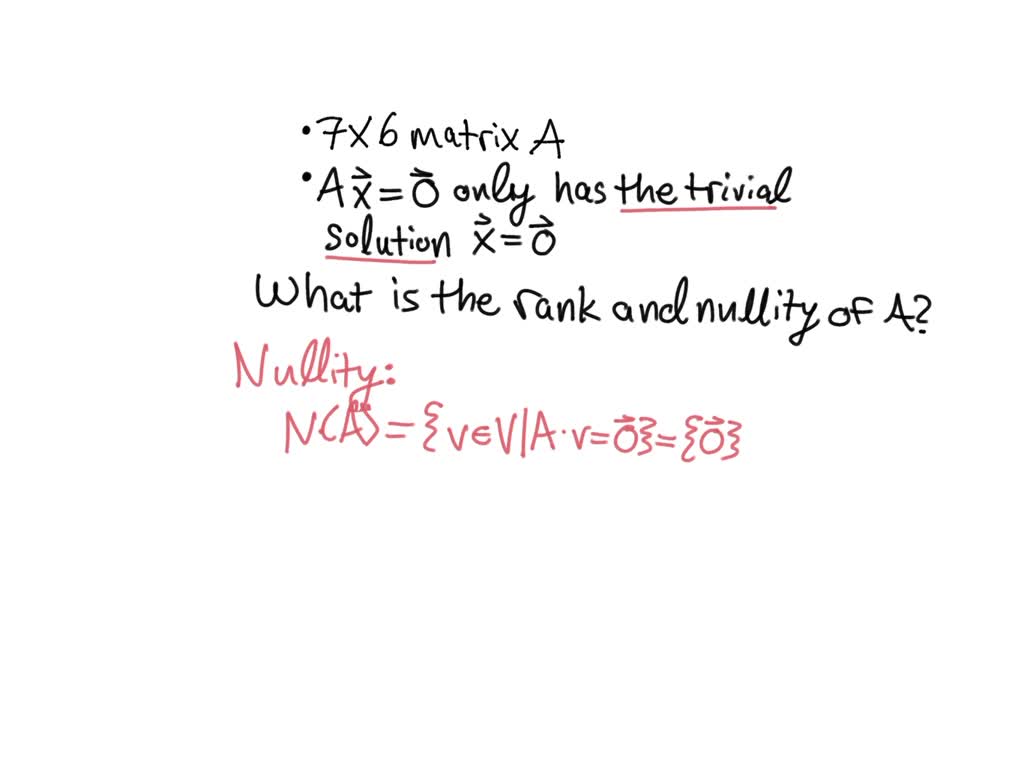 • 7×6 matrix A
• Ax⃗ = 0⃗ only has the trivial
solution x⃗ = 0⃗
What is the rank and nullity of A?
Nullity:
N(A) = {v∈V|A·v=0⃗}={0⃗}